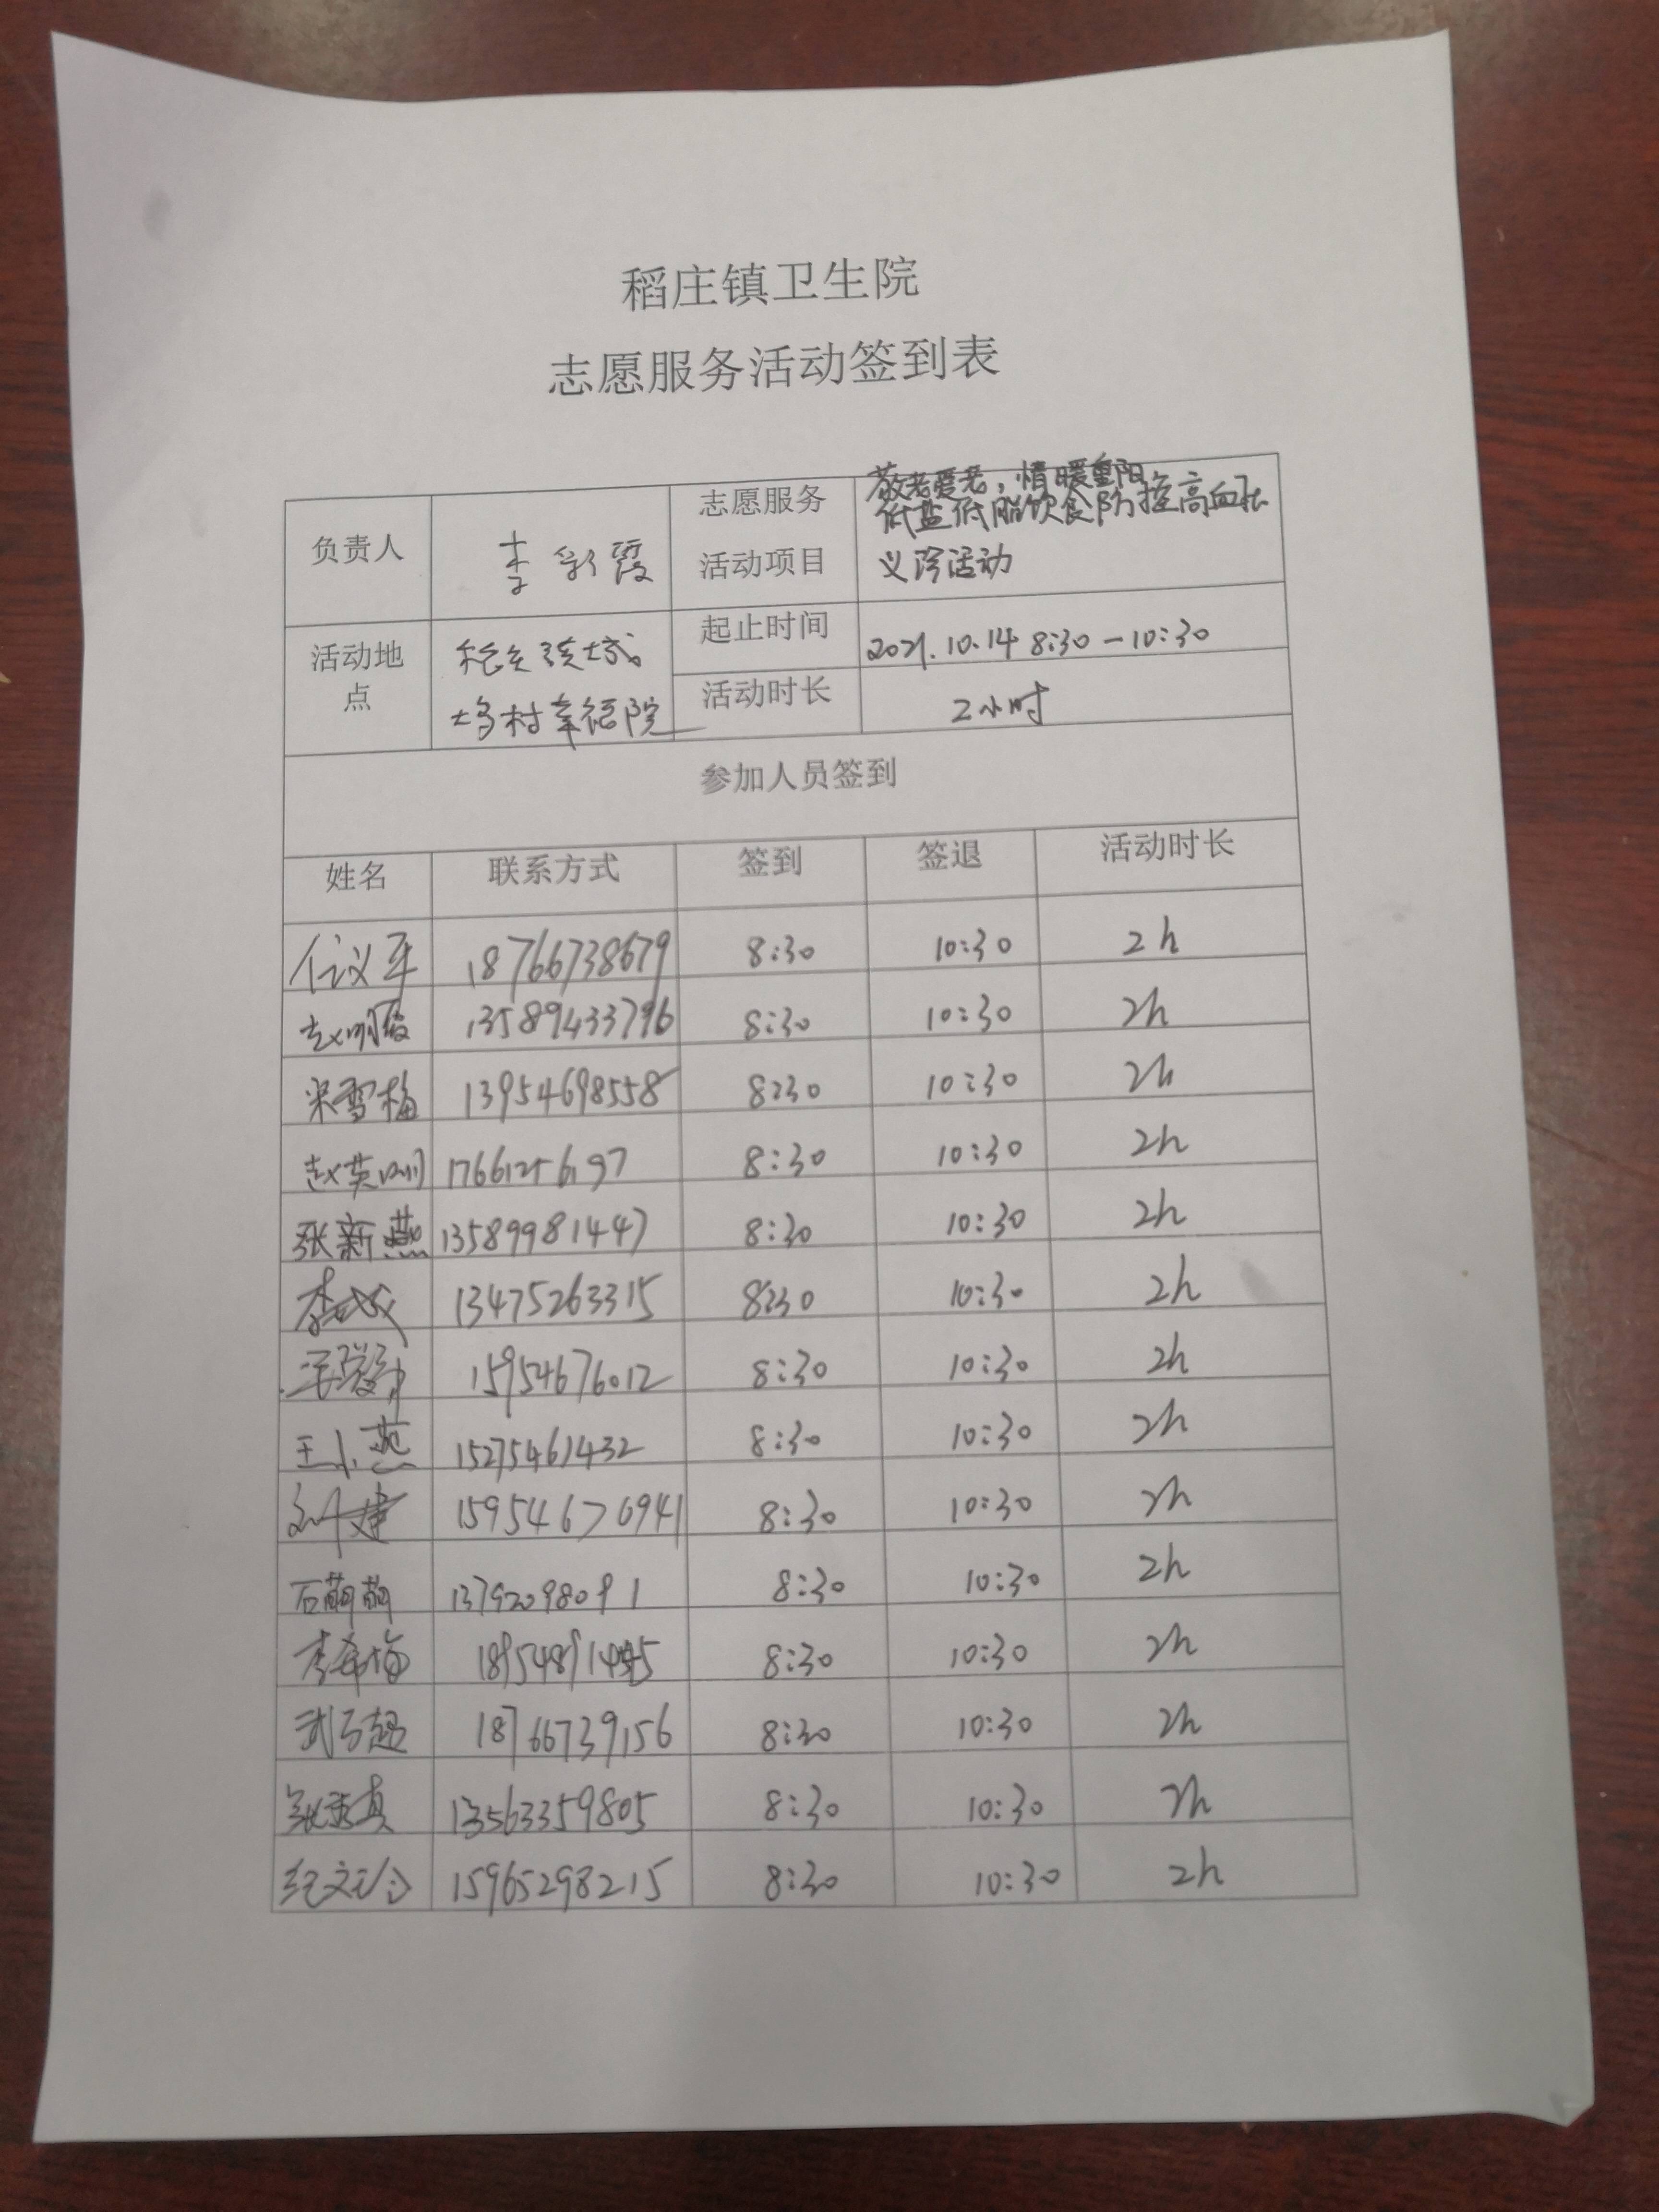 稻庄镇卫生院
志愿服务活动签到表
负责人 李彩霞 志愿服务活动项目 敬老爱老，情暖重阳
低盐低脂饮食防控高血压
义诊活动
活动地点 村幸福院 起止时间 2021.10.14 8:30-10:30
活动时长 2小时
参加人员签到
姓名 联系方式 签到 签退 活动时长
18766738679 8:30 10:30 2h
赵明霞 13589433796 8:30 10:30 2h
宋雪梅 13954698558 8:30 10:30 2h
赵英 17661256197 8:30 10:30 2h
张新燕 13589981447 8:30 10:30 2h
李 13475263315 8:30 10:30 2h
15954676012 8:30 10:30 2h
王小燕 15275461432 8:30 10:30 2h
刘建 15954676941 8:30 10:30 2h
石萌萌 13792098091 8:30 10:30 2h
李希梅 8:30 10:30 2h
武 超 18766739156 8:30 10:30 2h
张 真 13563359805 8:30 10:30 2h
纪文 15965298215 8:30 10:30 2h